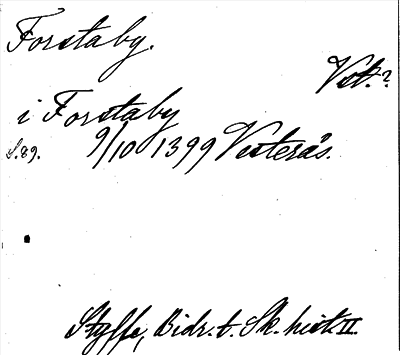 Forstaby.
Vstk.?
i Forstaby
S.89. 9/10 1399 Vesterås.
Styffe, Bidr. t. Sk. hist. II.